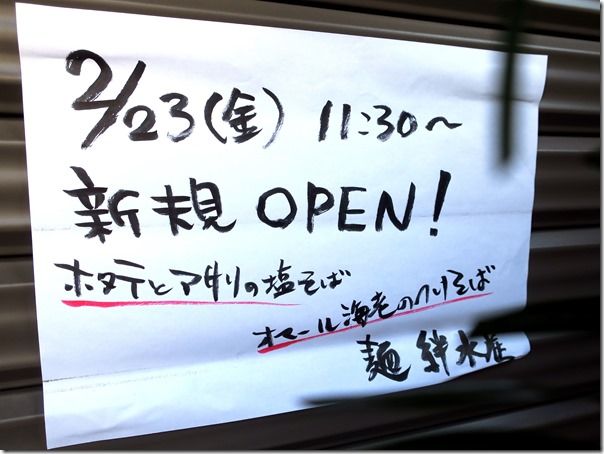 2/23(金) 11:30〜
新規 OPEN!
ホタテとアサリの塩そば
オマール海老の
麺 絆水産